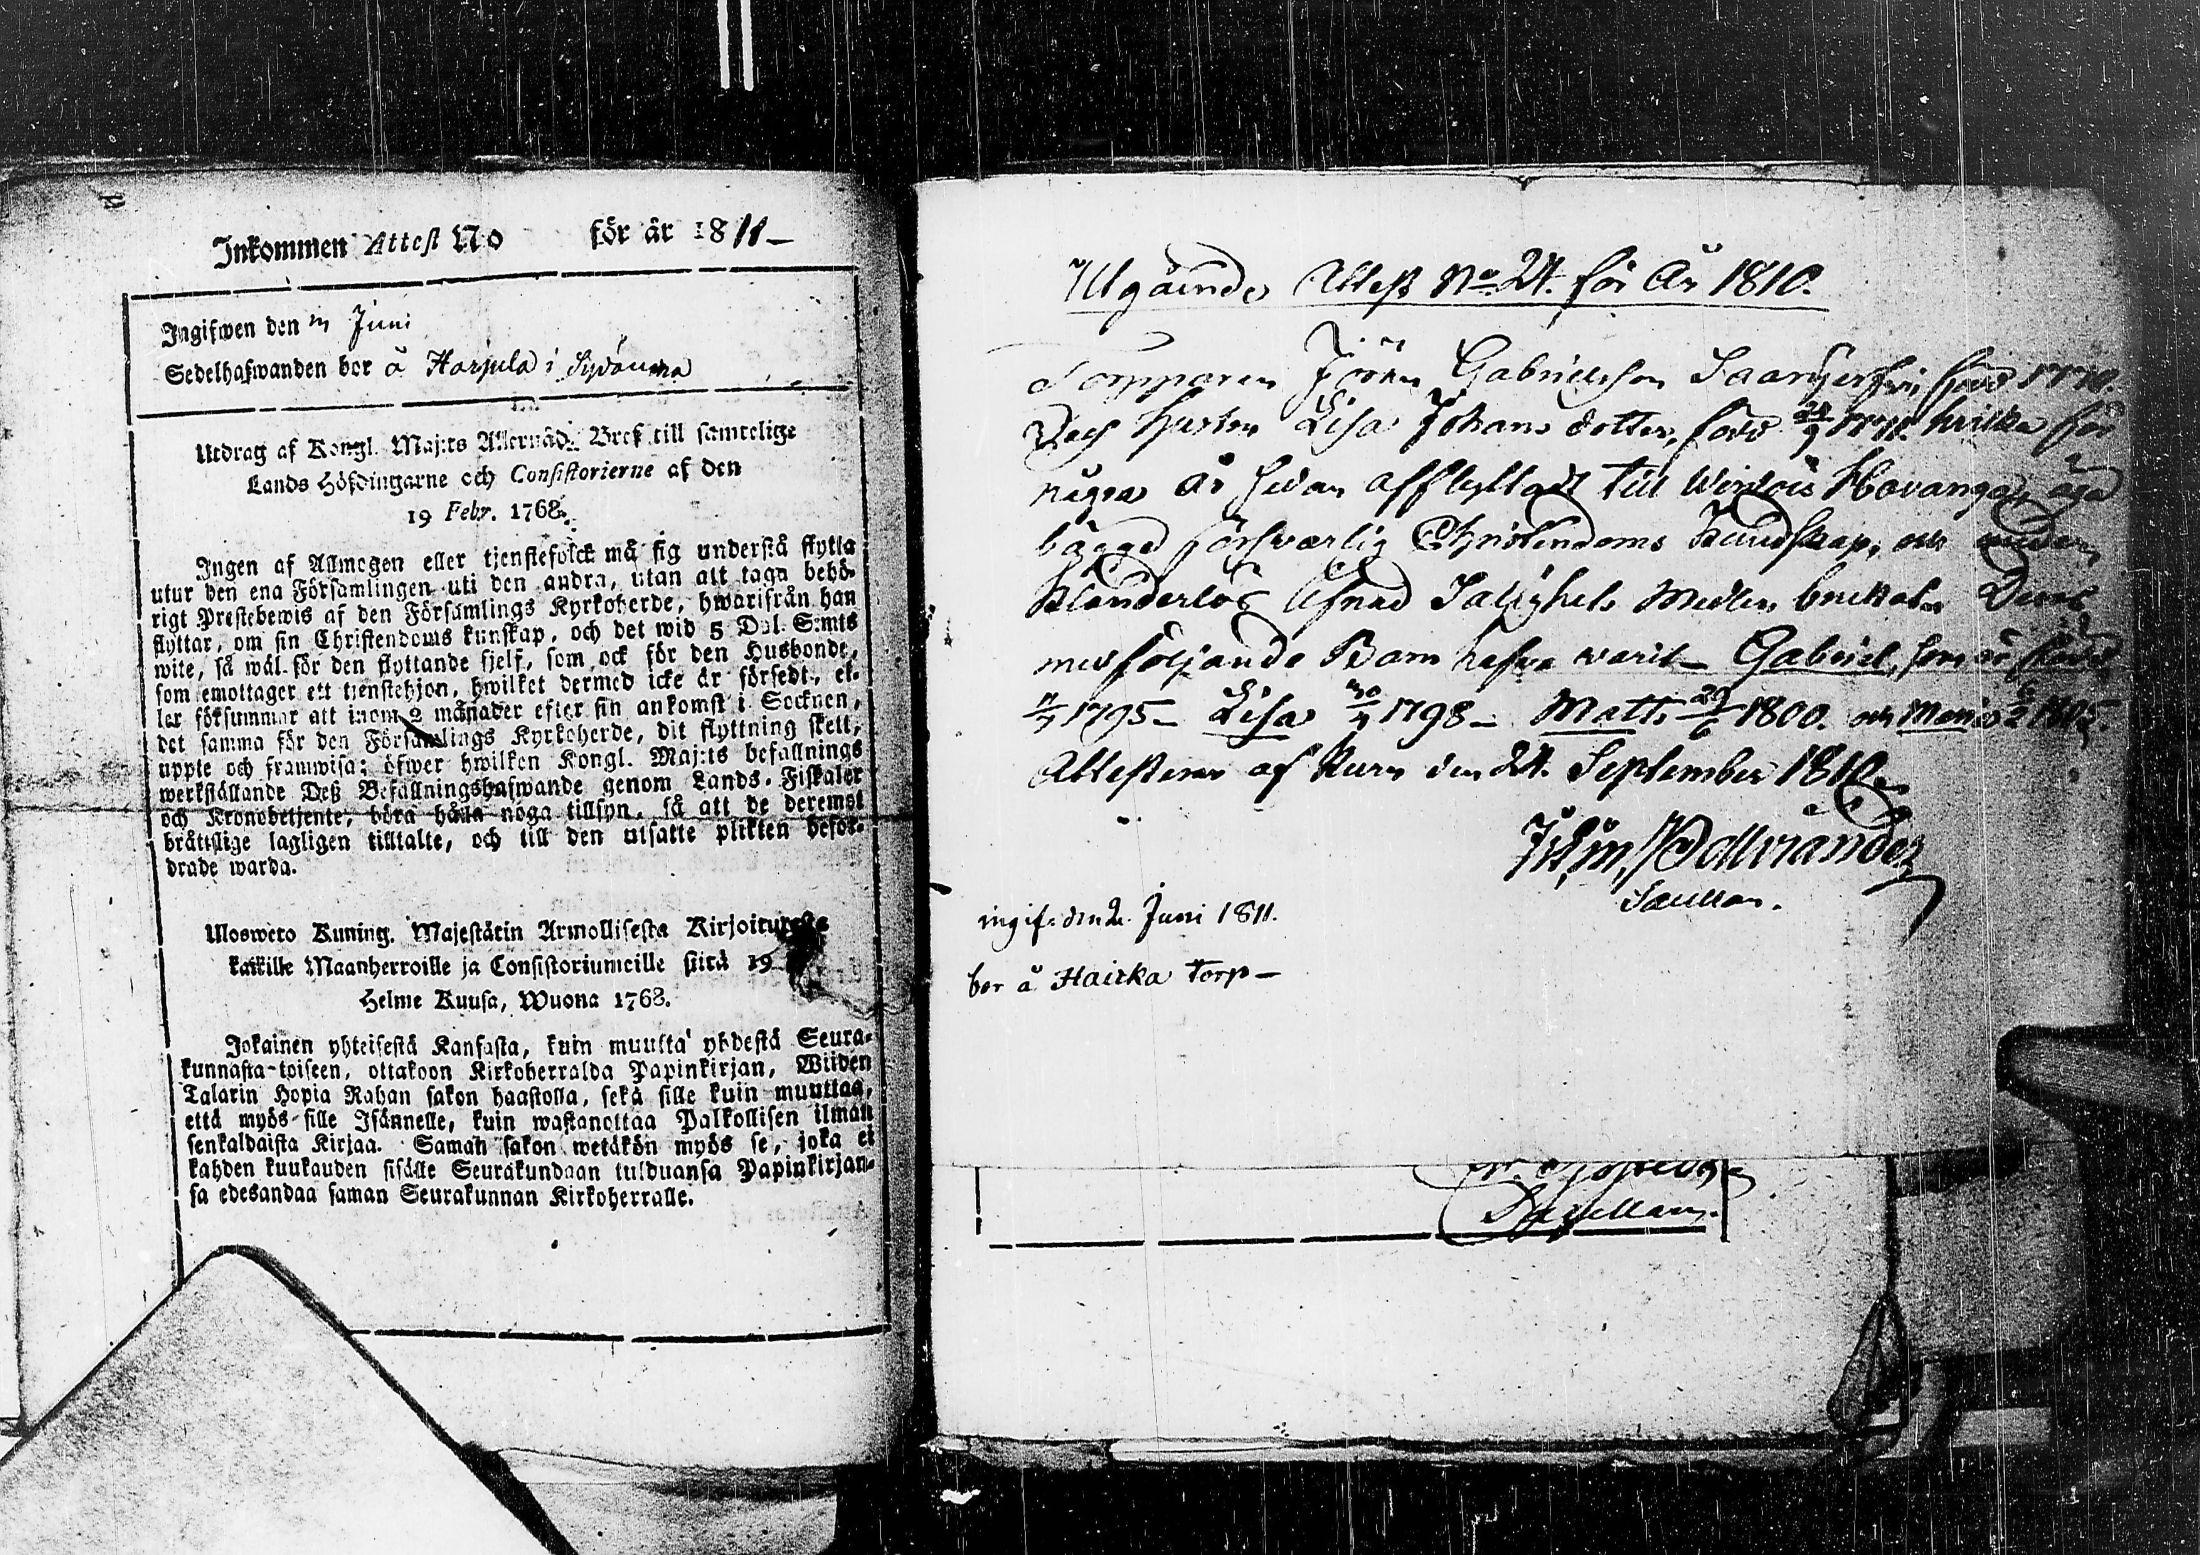 Inkommen Attest No för år 1811 –
Ingifwen den Juni
Sedelhafwanden bor å Harjula i Sydänma
Utdrag af Kongl. Maj:ts Allernåd. Bref till samtelige
Lands Höfdingarne och Consistorierne af den
19 Febr. 1768.
Ingen af Allmogen eller tjenstefolck må sig understå flytta
utur den ena Församlingen uti den andra, utan att taga behö-
rigt Prestebewis af den Församlings Kyrkoherde, hwarifrån han
flyttar, om sin Christendoms kunskap, och det wid 5 Dal. S:mts
wite, så wäl för den flyttande sjelf, som ock för den Husbonde,
som emottager ett tienstehjon, hwilket dermed icke är försedt, el-
ler försummar att inom 2 månader efter sin ankomst i Socknen,
det samma för den Församlings Kyrkoherde, dit flyttning skett,
uppte och framwisa; öfwer hwilken Kongl. Maj:ts befallnings
werkställande Deß Befallningshafwande genom Lands-Fiskaler
och Kronobetjente, böra hålla noga tillsyn, så att de deremot
bråttslige lagligen tilltalte, och till den utsatte plikten befor-
drade warda.
Uloswero Kuning. Majestätin Armollisesta Kirjoituxesta
kaikille Maanherroille ja Consistoriumeille siitä 19
Helme Kuusa, Wuona 1768.
Jokainen yhteisestä Kansasta, kuin muutta yhdestä Seura-
kunnasta toiseen, ottakoon Kirkoherralda Papinkirjan, Wiiden
Talarin Hopia Rahan sakon haastolla, sekä sille kuin muuttaa,
että myös sille Isännelle, kuin wastanottaa Palkollisen ilman
senkaldaista Kirjaa. Saman sakon wetäkön myös se, joka ei
kahden kuukauden sisälle Seurakundaan tulduansa Papinkirjan-
sa edesandaa saman Seurakunnan Kirkoherralle.
Utgående Attest No 24. för År 1810.
Torpparen Jöran Gabrielsson Saarijerfwi, född 1770.
Och Hustru Lisa Johans dotter, född 1771. hvilka för
några år sedan afflyttadt till Wirdois Havanga, äga
bägge försvarlig Christendoms Kundskap, och under
Klanderlös lefnad Salighets Medlen bruckat. Deras
medföljande Barn hafva varit – Gabriel, som är född
1795 – Lisa 1798 – Matts 29/6 1800. och Maria 1805
Attesteras af Kuru den 24. September 1810.
Sacellan.
ingif. den 2. Juni 1811.
bor å Haicka Torp –
Sacellan.